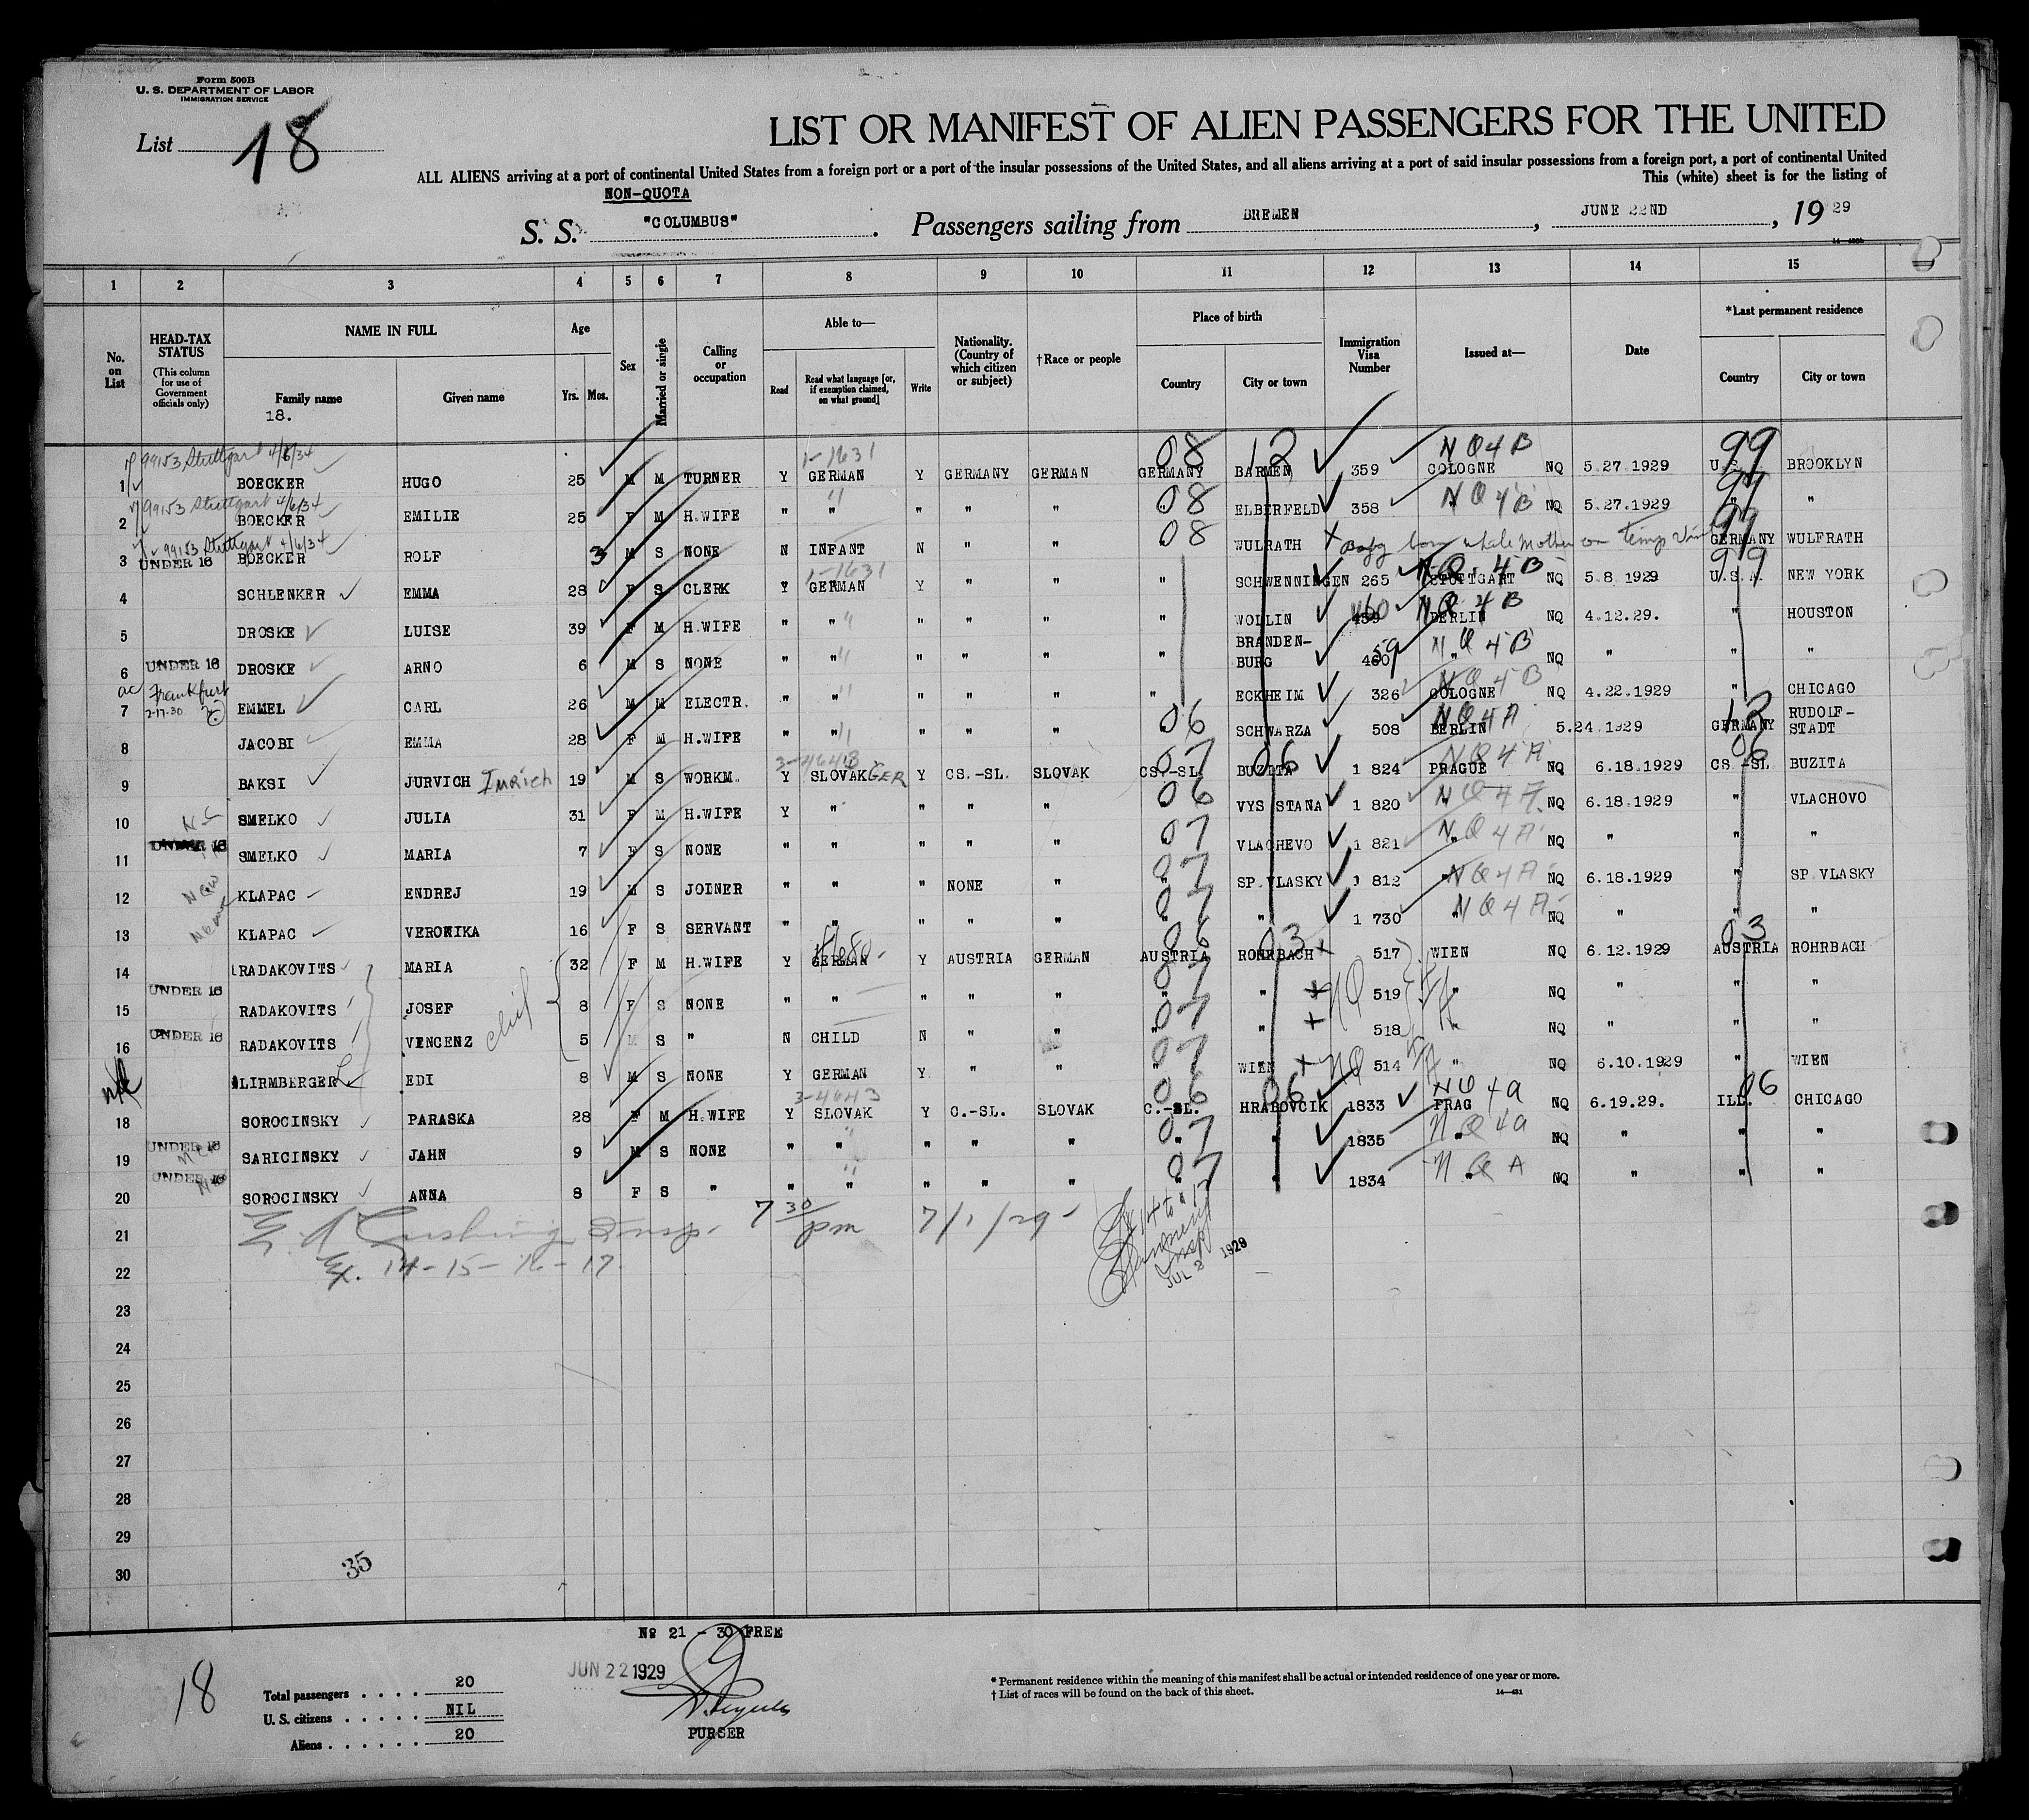 Form 500B
U. S. DEPARTMENT OF LABOR
IMMIGRATION SERVICE
List 18
LIST OR MANIFEST OF ALIEN PASSENGERS FOR THE UNITED
ALL ALIENS arriving at a port of continental United States from a foreign port or a port of the insular possessions of the United States, and all aliens arriving at a port of said insular possessions from a foreign port, a port of continental United
This (white) sheet is for the listing of
NON-QUOTA
S. S. "COLUMBUS". Passengers sailing from BREMEN, JUNE 22ND, 1929
1 2 3 4 5 6 7 8 9 10 11 12 13 14 15
No. on List
HEAD-TAX STATUS (This column for use of Government officials only)
NAME IN FULL
Family name
18.
Given name
Age
Yrs. Mos.
Sex
Married or single
Calling or occupation
Able to—
Read
Read what language [or, if exemption claimed, on what ground]
Write
Nationality. (Country of which citizen or subject)
†Race or people
Place of birth
Country
City or town
Immigration Visa Number
Issued at—
Date
*Last permanent residence
Country
City or town
99153 Stuttgart 4/6/34 1-1631 08 12 NQ4B 99
1 BOECKER HUGO 25 M M TURNER Y GERMAN Y GERMANY GERMAN GERMANY BARMEN 359 COLOGNE NQ 5.27.1929 U.S. BROOKLYN
99153 Stuttgart 4/6/34 08 NQ4B 99
2 BOECKER EMILIE 25 F M H.WIFE " " " " " ELBERFELD 358 NQ 5.27.1929 " "
99153 Stuttgart 4/6/34 08 99
3 UNDER 16 BOECKER ROLF 3 M S NONE N INFANT N " " " WULRATH X Baby born while Mother on temp visit GERMANY WULFRATH
1-1631 NQ 4B 99
4 SCHLENKER EMMA 28 F S CLERK Y GERMAN Y " " " SCHWENNINGEN 265 STUTTGART NQ 5.8.1929 U.S.A. NEW YORK
460 NQ 4B
5 DROSKE LUISE 39 F M H.WIFE " " " " " " WOLLIN 459 BERLIN NQ 4.12.29. " HOUSTON
59 NQ 4B
6 UNDER 16 DROSKE ARNO 6 M S NONE " " " " " " BRANDEN-BURG 460 " NQ " " "
Frankfurt 2-17-30 NQ4B
7 EMMEL CARL 26 M M ELECTR. " " " " " " ECKHEIM 326 COLOGNE NQ 4.22.1929 " CHICAGO
06 NQ4A 12
8 JACOBI EMMA 28 F M H.WIFE " " " " " SCHWARZA 508 BERLIN NQ 5.24.1929 GERMANY RUDOLF-STADT
3-4643 07 06 NQ4A 06
9 BAKSI JURVICH Imrich 19 M S WORKM. Y SLOVAK GER Y CS.-SL. SLOVAK CS.-SL. BUZITA 1 824 PRAGUE NQ 6.18.1929 CS.-SL BUZITA
06 NQ4A
10 SMELKO JULIA 31 F M H.WIFE Y " " " " VYS STANA 1 820 NQ 6.18.1929 " VLACHOVO
07 NQ4A
11 UNDER 16 SMELKO MARIA 7 F S NONE " " " " " VLACHEVO 1 821 " NQ " " "
New 07 NQ4A
12 KLAPAC ENDREJ 19 M S JOINER " " " NONE " " SP.VLASKY 1 812 " NQ 6.18.1929 " SP.VLASKY
07 NQ4A
13 KLAPAC VERONIKA 16 F S SERVANT " " " " " " " 1 730 " NQ " " "
06 03 03
14 RADAKOVITS MARIA 32 F M H.WIFE Y GERMAN Y AUSTRIA GERMAN AUSTRIA ROHRBACH 517 WIEN NQ 6.12.1929 AUSTRIA ROHRBACH
07
15 UNDER 16 RADAKOVITS JOSEF 8 F S NONE " " " " " " " 519 " NQ " " "
07
16 UNDER 16 RADAKOVITS VINCENZ 5 M S " N CHILD N " " " " 518 " NQ " " "
07 NQ
LIRMBERGER EDI 8 M S NONE Y GERMAN Y " " WIEN 514 " NQ 6.10.1929 " WIEN
3-4643 06 06 NQ4a 06
18 SOROCINSKY PARASKA 28 F M H.WIFE Y SLOVAK Y C.-SL. SLOVAK C.-SL. HRABOVCIK 1833 PRAG NQ 6.19.29. ILL. CHICAGO
07 NQ4a
19 UNDER 16 SARICINSKY JAHN 9 M S NONE " " " " " " " 1835 " NQ " " "
07 NQ A
20 UNDER 16 SOROCINSKY ANNA 8 F S " " " " " " " 1834 " NQ " " "
21 Cushing Insp. 7 30 pm 7/1/29
22 Ex. 14-15-16-17.
Ex 14 to 17
Insp
JUL 2 1929
23
24
25
26
27
28
29
30
35
No 21 - 30 FREE
JUN 22 1929
18
Total passengers . . . . 20
U. S. citizens . . . . . NIL
Aliens . . . . . . 20
PURSER
* Permanent residence within the meaning of this manifest shall be actual or intended residence of one year or more.
† List of races will be found on the back of this sheet.
14—431